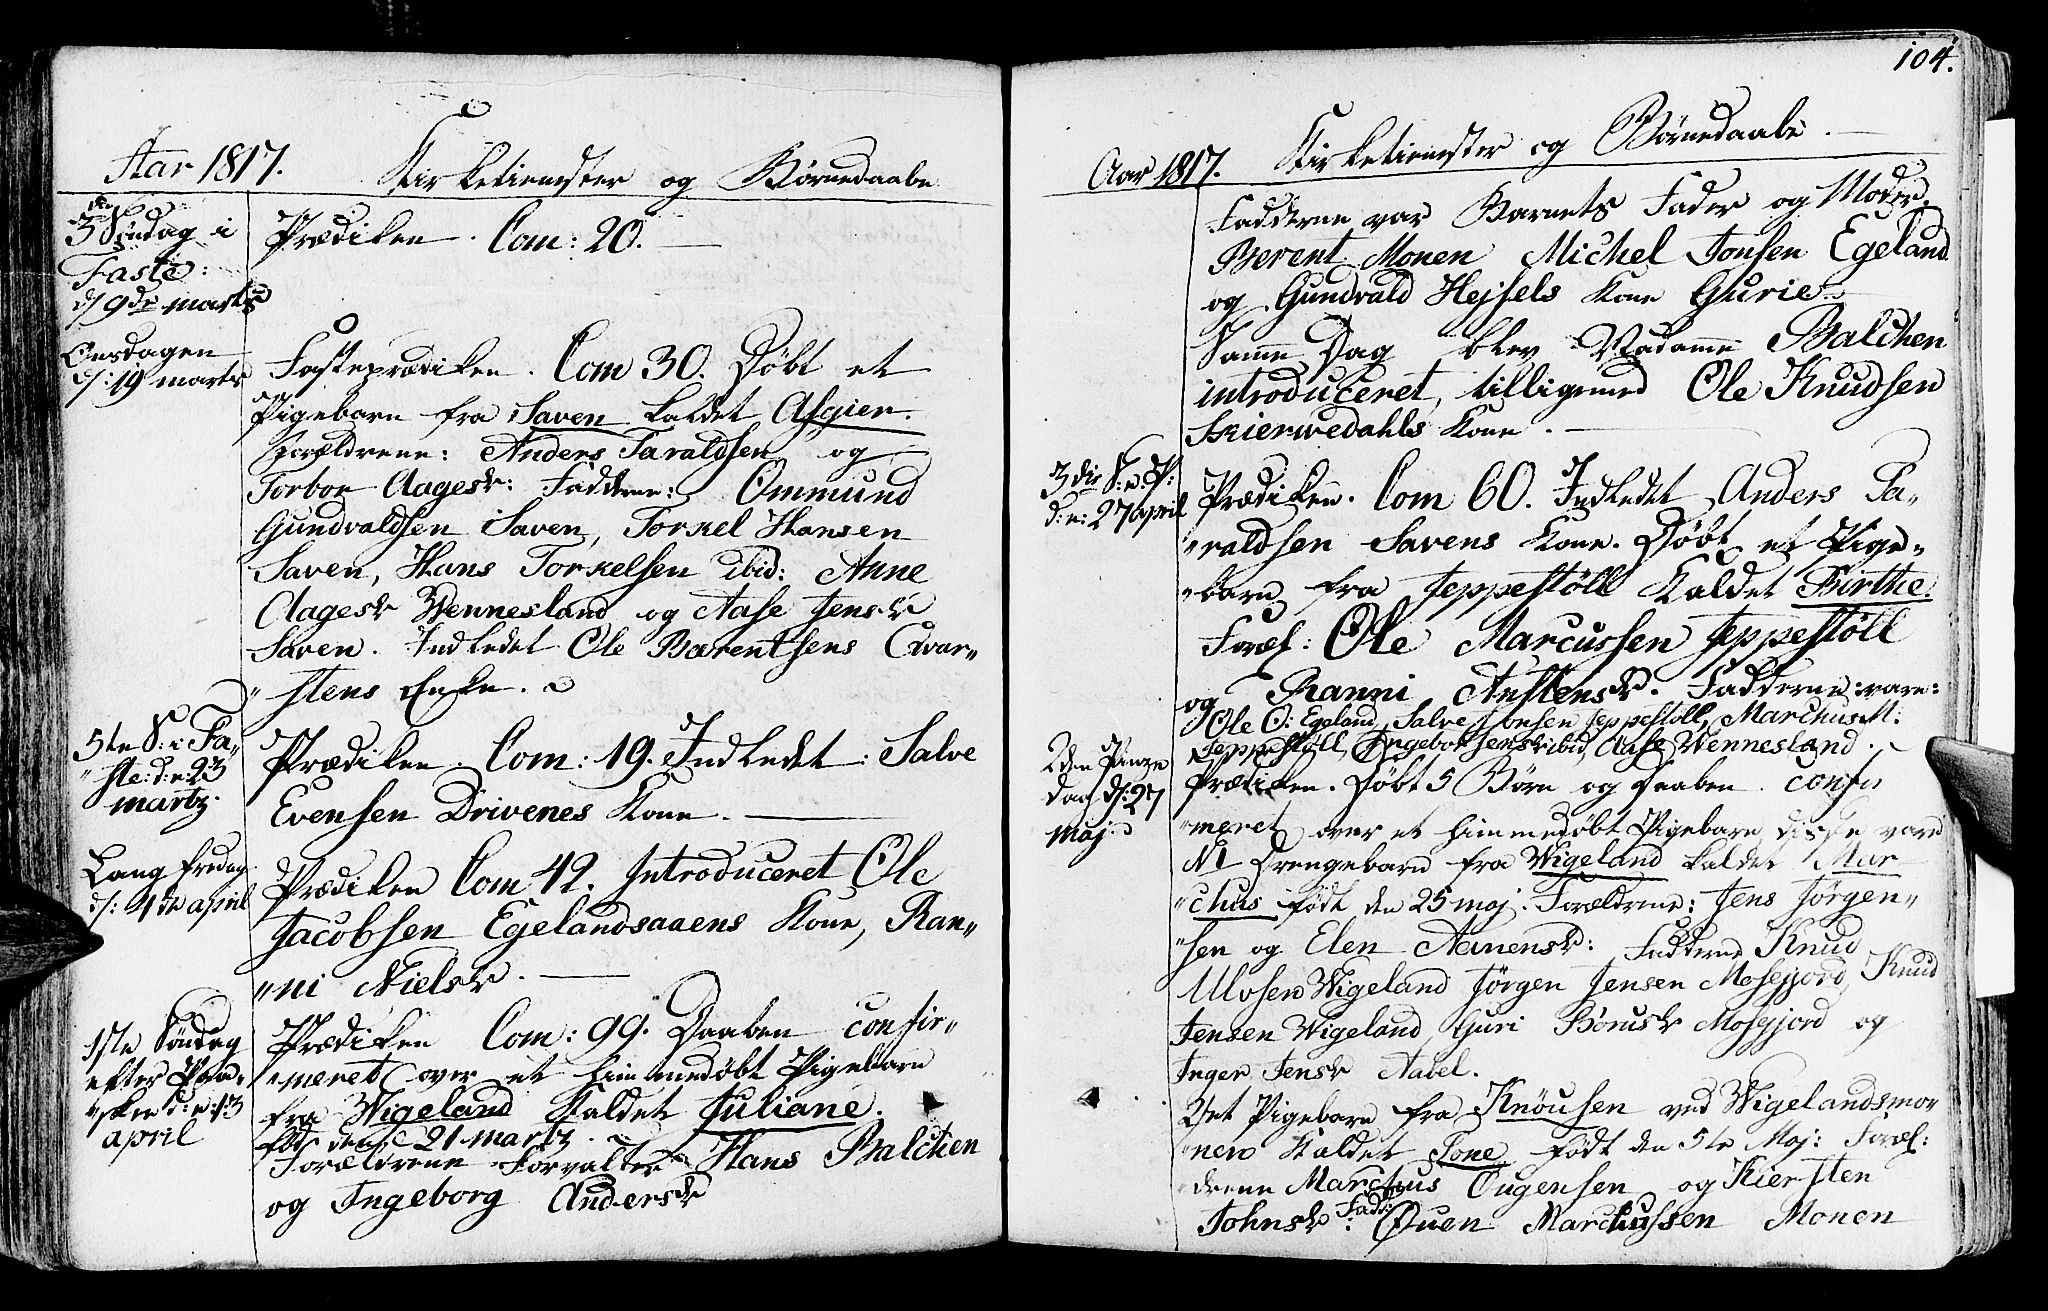 Aar 1817. Kirketienester og Børnedaabe
3die Søndag i
Faste
d: 9de marts
Prædiken. Com: 20.
Onsdagen
d: 19 marts
Fasteprædiken. Com 30. Døbt et
Pigebarn fra Saven kaldet Asgier.
Forældrene: Anders Taraldsen og
Torbor Aagesdr: Fadderne: Ommund
Gundvaldsen Saven, Torkel Hansen
Saven, Hans Torkelsen ibid: Anne
Aagesdr Wennesland og Aase Jensdr
Saven. Indledet Ole Bærentsens Qvar-
"stens Enke.
5te S: i Fa-
"ste: d: 23
martz.
Prædiken. Com: 19. Indledet: Salve
Evensen Drivenes Kone.
Lang fredag
d: 4de april
Prædiken Com 42. Introduceret Ole
Jacobsen Egelandsaaens Kone, Ran-
"ni Nielsdr.
1ste Søndag
efter Paa-
"ske d: 13
april
Prædiken Com: 99. Daaben confir-
"meret over et hiemmedøbt Pigebarn
fra Wigeland Kaldet Juliane.
fød den 21 martz.
Forældrene Forvalter Hans Balchen
og Ingeborg Andersdr
104.
Aar 1817. Kirketienester og Børnedaabe.
Fadderne var Barnets Fader og Moder.
Berent Monen Michel Jonsen Egeland
og Gundvald Hejsels Kone Gurie.
Samme Dag blev Madamme Balchen
introduceret, tilligemed Ole Knudsen
Skierwedahls Kone.
3die S: e: P:
d: 27 april
Prædiken. Com 60. Indledet Anders Ta-
"raldsen Savens Kone. Døbt et Pige-
"barn fra Jeppestöll Kaldet Birthe.
Foræl: Ole Marcussen Jeppestöll
og Ranni Austensdr. Fadderne vare:
Ole O: Egeland, Salve Jonsen Jeppestöll, Marchus M:
Jeppestöll, Ingebor Jensdr ibid, Aase Wennesland.
2den Pinze
dag d: 27
maj.
Prædiken. Døbt 5 Børn og Daaben confir
"meret over et hiemmedøbt Pigebarn disse vare
N1 Drengebarn fra Wigeland kaldet Mar
"chus født den 25 maj. Forældrene: Jens Jørgen-
"sen og Elen Aanensdr: Fadderne Knud
Ulvsen Wigeland Jørgen Jensen Mosejord, Knud
Jensen Wigeland, Guri Börusdr Mosejord og
Inger Jensdr Aabel.
2 et Pigebarn fra Knöusen ved Wigelandsmo-
"nen Kaldet Tone født den 5te Maj: Foræl:
"drene Marchus Ougensen og Kiersten
Johnsdr: Fadd: Ouen Marchussen Monen